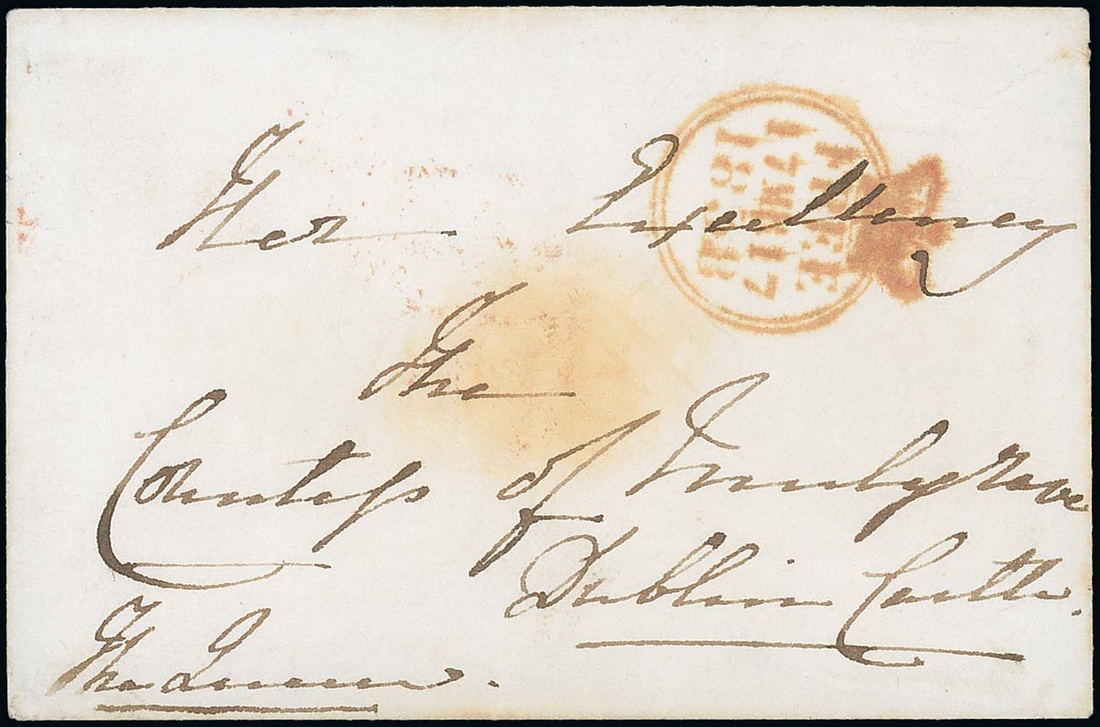 Her Excellency
The
Countess of Mulgrave
Dublin Castle.
The Queen.
FREE
17 MR 17
1838